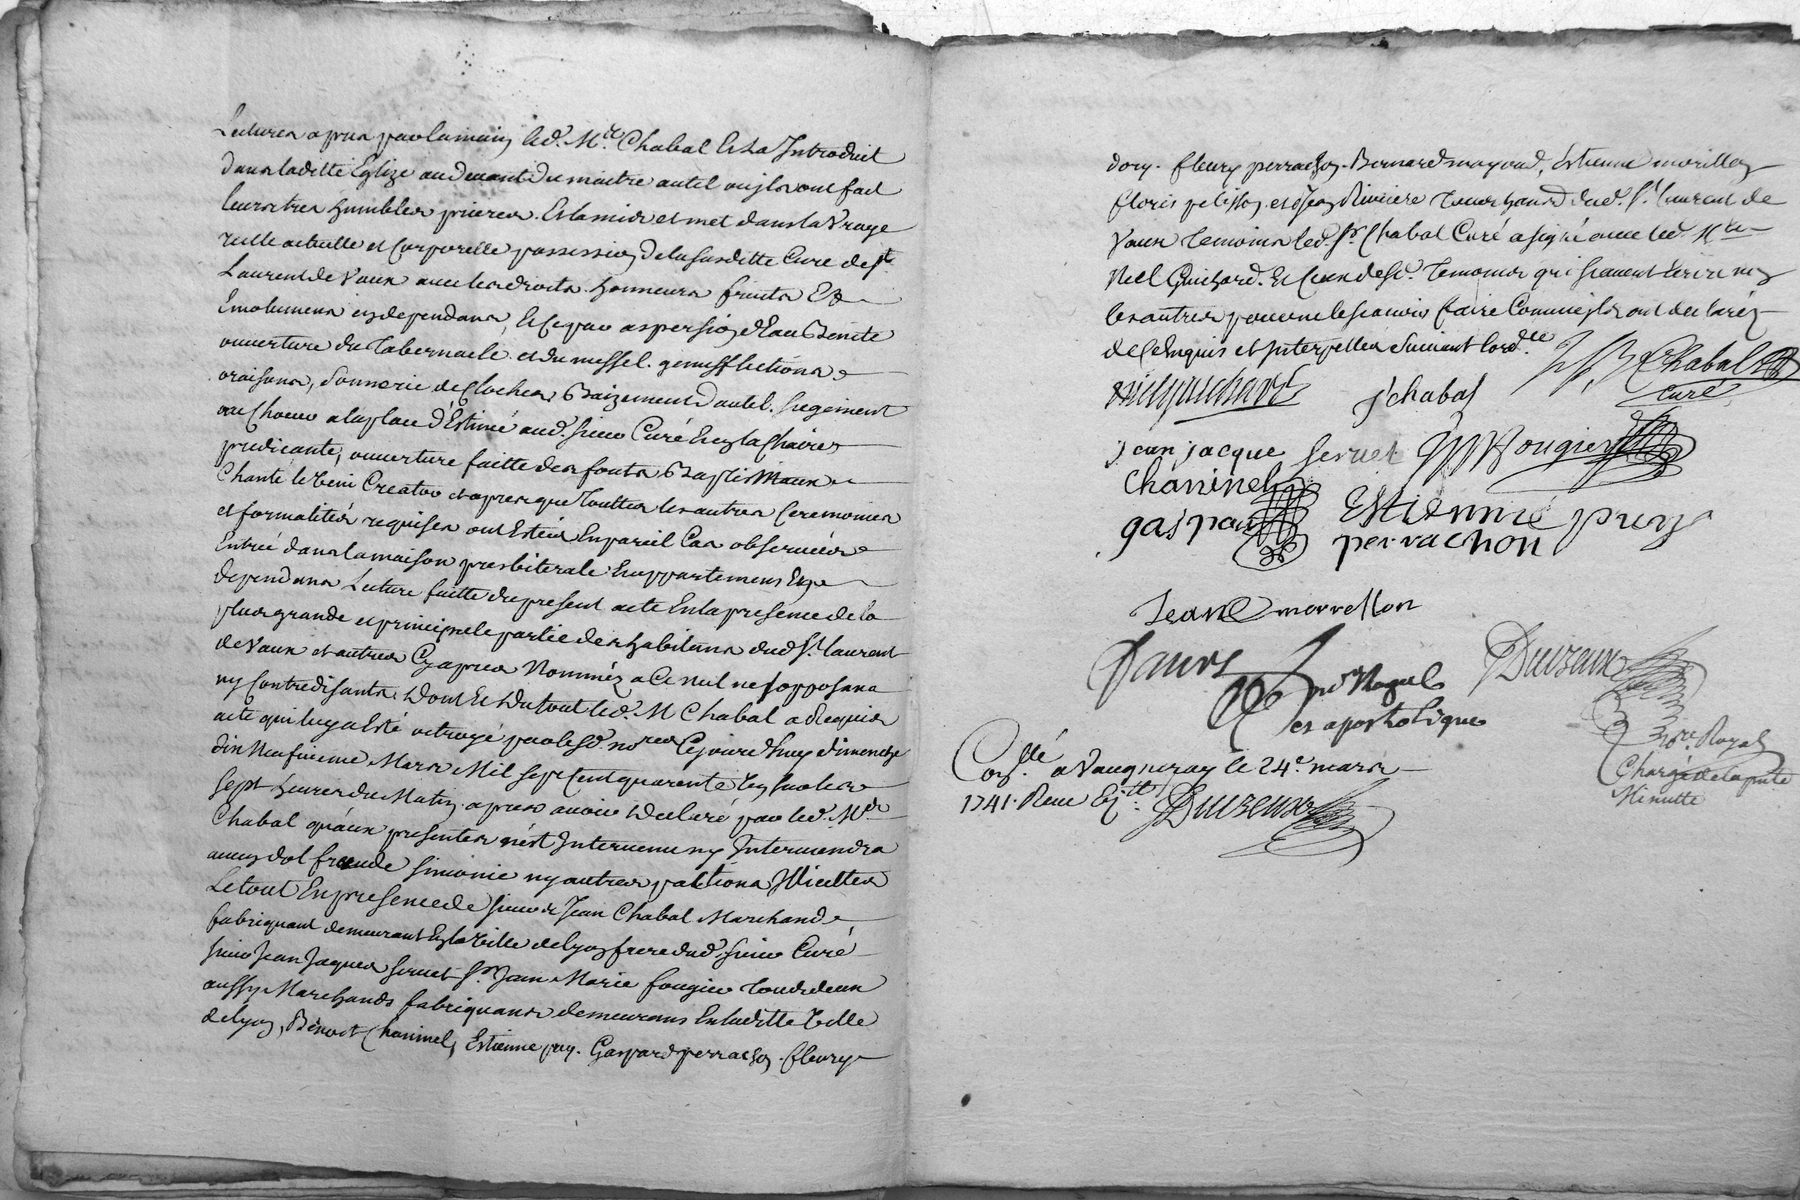 Lectures a pris par la main led. Mre Chabal & La Introduit
dans ladette Eglize au devant du maitre autel ou jls ont fait
leurs tres humbles prieres. Et la mis et met dans la Vraye
reelle actuelle et Corporelle possession de la susditte Cure de St
Laurent de Vaux avec les droits honneurs fruits &
Emolumens en dependans, & Ce par aspersion d'Eau Benite
ouverture du Tabernacle et du messel. genufflections
oraisons, Sonnerie de Cloches Baizement d'autel. siegement
au Choeur a la place d'Estinée aud. sieur Curé En la Chaire
predicante, ouverture faitte des fonts Baptismaux
Chanté le Veni Creator et apres que Touttes les autres Ceremonies
et formalités requises ont Estées En pareil Cas observées
Entrée dans la maison presbiterale En appartemens En
dependans Lecture faitte du present acte En la presence de la
plus grande et principale partie des habitans dud. St. laurent
de Vaux et autres Cy apres Nommés a Ce nul ne sopposans
ny Contredisants. Dont Et Du tout led. M Chabal a Requis
acte qui luy a Esté octroyé par lesd. nores Cejourd'huy dimanche
dix Neufvieme Mars Mil sept Cent quarante Un sur les
sept heures du Matin. apres avoir declaré par led. Mre
Chabal qu'aux presentes n'est Intervenu ny Interviendra
aucun dol fraude simonie ny autres pactions Illicittes
Le tout En presence de sieurs Jean Chabal Marchand
fabriquant demeurant En la Ville de lyon frere dud. sieur Curé
sieur Jean Jaques servet sr. Jean Marie fougier Tous deux
aussy Marchands fabriquans demeurans En laditte Ville
de lyon, Benoist Chaninel, Estienne puy. Gaspard perrachon. fleury
dory. fleury perrachon. Bernard mayoud, Estienne morillon
floris pelisson et Jean Riviere Tous habts dud. St. laurent de
Vaux Temoins led. sr. Chabal Curé a signé avec led. Mre
Niel Guichard. Et Ceux desd. Temoins qui scavent Ecrire non
les autres pour ne le scavoir faire Comme jls ont declaré
de Ce Enquis et Interpelles suivant lordce
nielguichard j chabal Chabal
Curé
jean jacque servet Vougier
Chaninel
gaspar Estienne puy
perrachon
Jean morrellon
Dauvs Duizeux
pre Royal
et apostolique
nore. Royal
Chargé de la pnte
Minutte
Conllé a Vaugneray le 24e. mars
1741. Receu
Duizeux